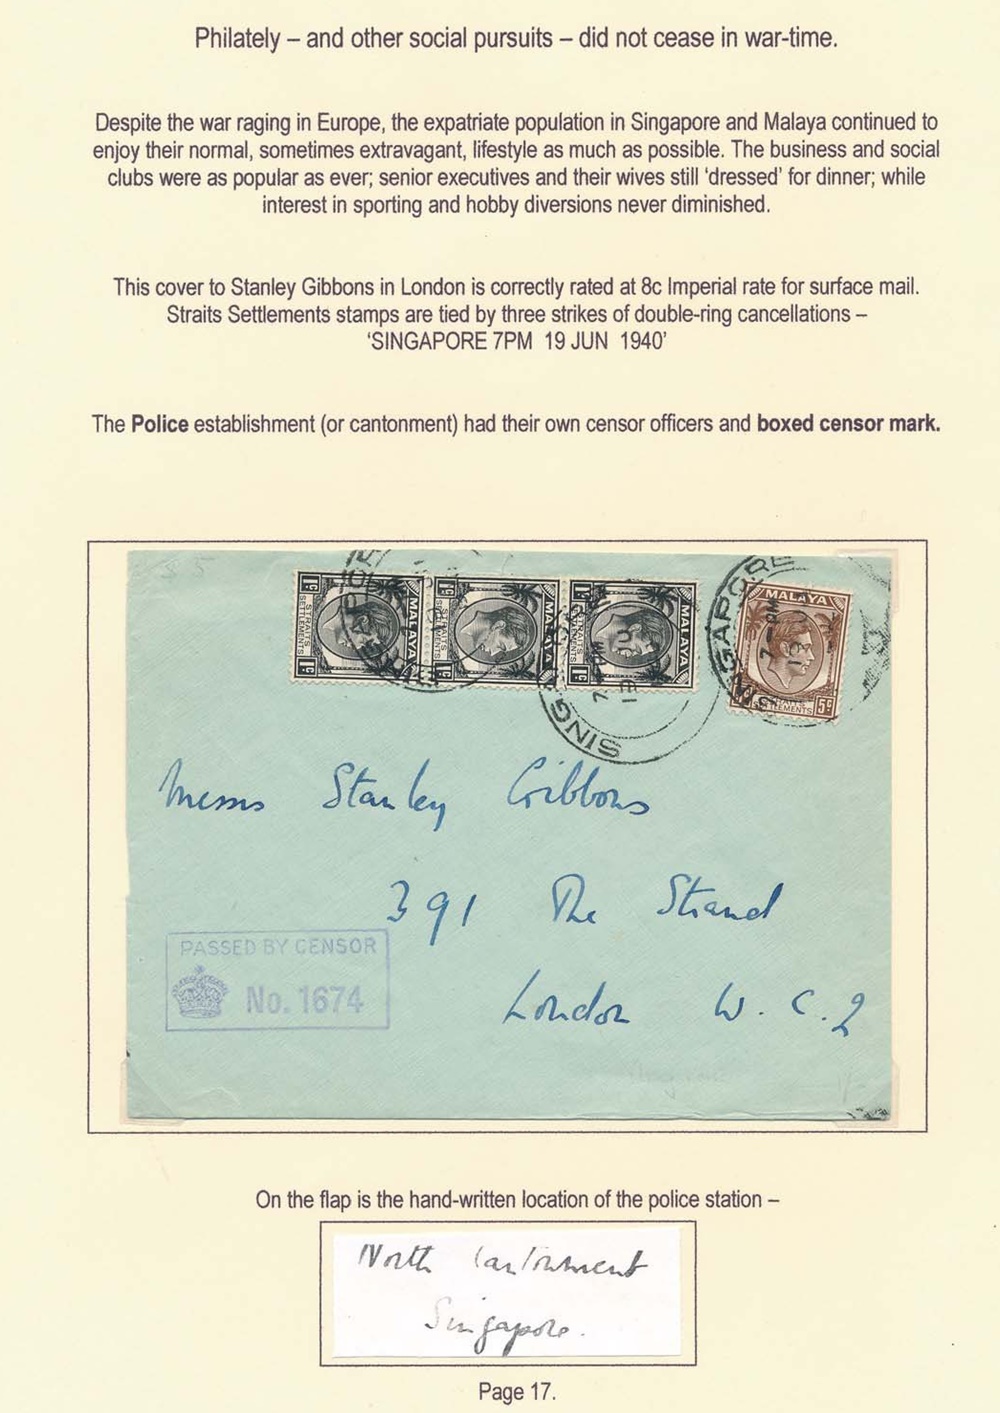 Philately – and other social pursuits – did not cease in war-time.
Despite the war raging in Europe, the expatriate population in Singapore and Malaya continued to
enjoy their normal, sometimes extravagant, lifestyle as much as possible. The business and social
clubs were as popular as ever; senior executives and their wives still ‘dressed’ for dinner; while
interest in sporting and hobby diversions never diminished.
This cover to Stanley Gibbons in London is correctly rated at 8c Imperial rate for surface mail.
Straits Settlements stamps are tied by three strikes of double-ring cancellations –
‘SINGAPORE 7PM 19 JUN 1940’
The Police establishment (or cantonment) had their own censor officers and boxed censor mark.
1c STRAITS SETTLEMENTS MALAYA 1c
1c STRAITS SETTLEMENTS MALAYA 1c
1c STRAITS SETTLEMENTS MALAYA 1c
MALAYA
SETTLEMENTS 5c
SINGAPORE
7–PM
19 JU
Messrs Stanley Gibbons
391 The Strand
London W.C.2
PASSED BY CENSOR
No. 1674
On the flap is the hand-written location of the police station –
North Cantonment
Singapore.
Page 17.